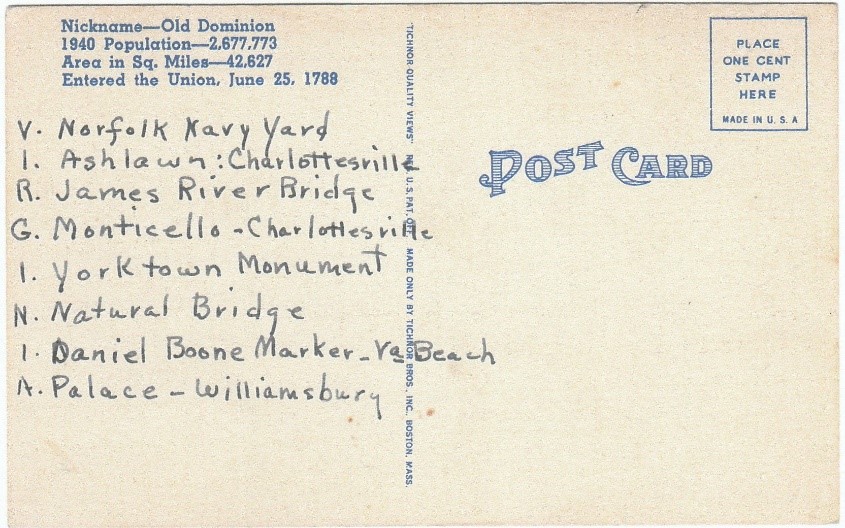 Nickname—Old Dominion
1940 Population—2,677,773
Area in Sq. Miles—42,627
Entered the Union, June 25, 1788
V. Norfolk Navy Yard
I. Ashlawn: Charlottesville
R. James River Bridge
G. Monticello - Charlottesville
I. Yorktown Monument
N. Natural Bridge
I. Daniel Boone Marker - Va Beach
A. Palace - Williamsbury
"TICHNOR QUALITY VIEWS" REG. U. S. PAT. OFF. MADE ONLY BY TICHNOR BROS., INC., BOSTON, MASS.
POST CARD
PLACE
ONE CENT
STAMP
HERE
MADE IN U. S. A